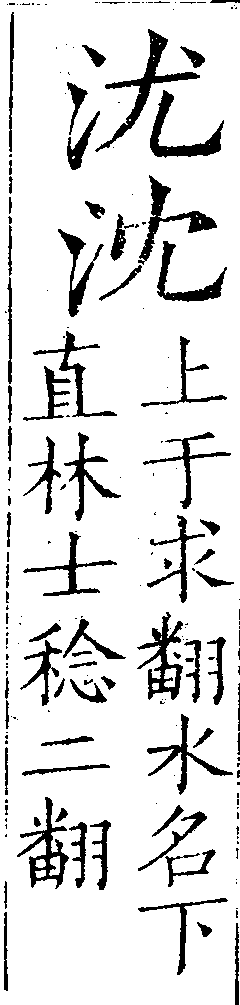 沋沈
上于求翻水名下
直林士稔二翻